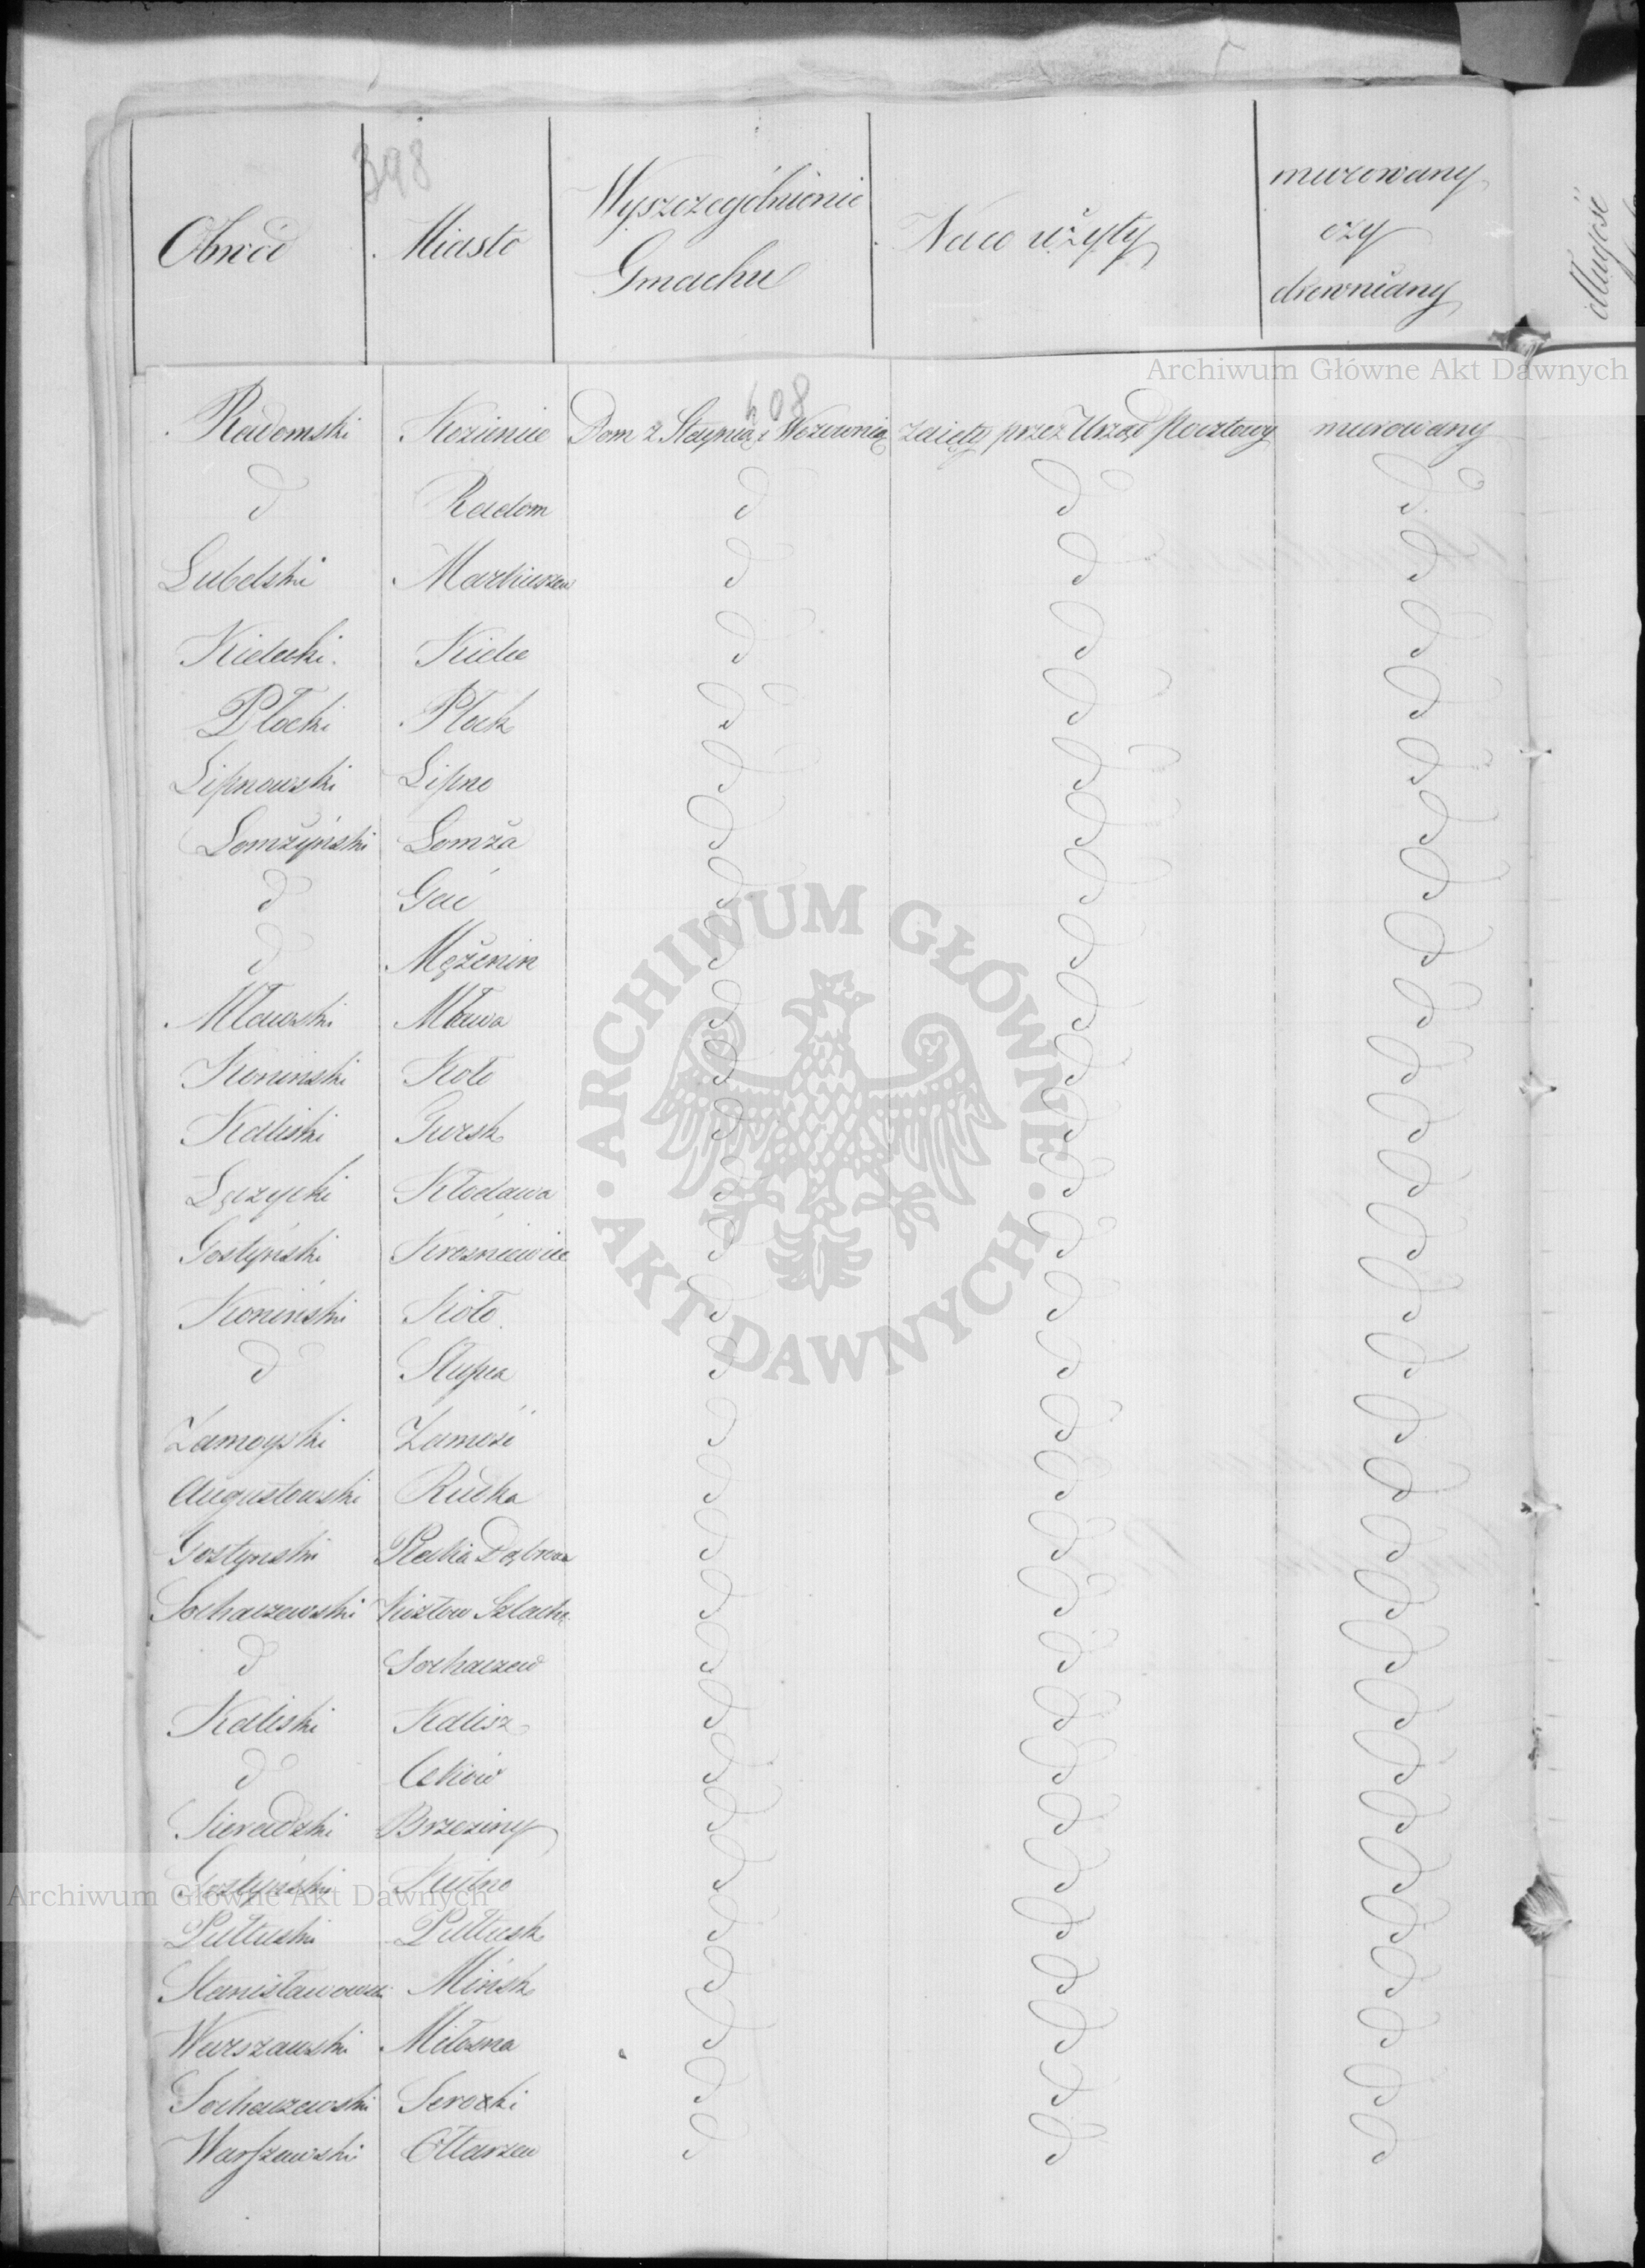 398
Obwód Miasto Wyszczególnienie Gmachu Na co użyty murowany czy drewniany długość
408
Radomski Kozienice Dom z Stajnią i Wozownią zajęty przez Urząd Pocztowy murowany
d Radom d d d
Lubelski Markuszew d d d
Kielecki Kielce d d d
Płocki Płock d d d
Lipnowski Lipno d d d
Łomżyński Łomża d d d
d Gać d d d
d Mężenin d d d
Mławski Mława d d d
Koniński Koło d d d
Kaliski d d d
Łęczycki Kłodawa d d d
Gostyński Krośniewice d d d
Koniński Koło d d d
d Słupca d d d
Zamoyski Zamość d d d
Augustowski Rudka d d d
Gostynski Płecka Dąbrowa d d d
Sochaczewski Kozłow Szlach. d d d
d Sochaczew d d d
Kaliski Kalisz d d d
d Ceków d d d
Sieradzki Brzeziny d d d
Gostyński Kutno d d d
Pułtuski Pułtusk d d d
Stanisławowski Mińsk d d d
Warszawski Miłosna d d d
Sochaczewski Seroczki d d d
Warszawski Ołtarzew d d d
Archiwum Główne Akt Dawnych
ARCHIWUM GŁÓWNE
AKT DAWNYCH
Archiwum Główne Akt Dawnych